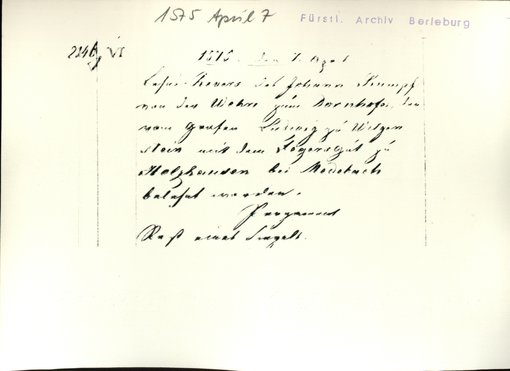 1575 April 7
Fürstl. Archiv Berleburg
1575. den 7. April
Lehns-Revers des Johann Rumpf
von der Wehre zum Dornhofe, der
vom Grafen Ludwig zu Witgen
stein mit dem Segersgut zu
Holzhausen bei Medebach
belehnt worden.
Pergament
Rest eines Siegels.